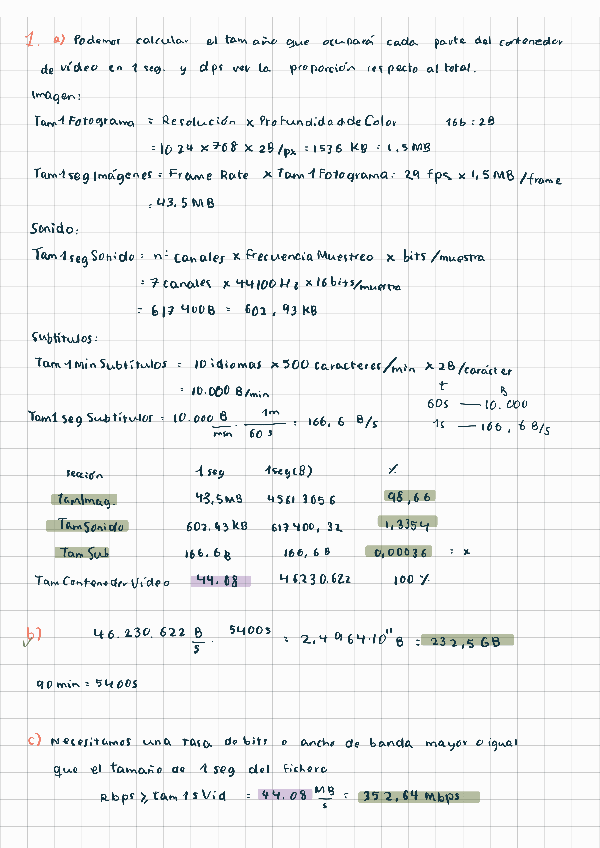 1. a) Podemos calcular el tamaño que ocupará cada parte del contenedor
de vídeo en 1 seg. y dps ver la proporción respecto al total.
Imagen:
Tam 1 Fotograma = Resolución x Profundidad de Color 16b = 2B
= 1024 x 768 x 2B/px = 1536 KB = 1,5 MB
Tam 1 seg Imágenes = Frame Rate x Tam 1 Fotograma = 29 fps x 1,5 MB/frame
= 43.5 MB
Sonido:
Tam 1 seg Sonido = nº canales x Frecuencia Muestreo x bits/muestra
= 7 canales x 44100 Hz x 16 bits/muestra
= 617 400 B = 602,93 KB
Subtítulos:
Tam 1 Min Subtítulos = 10 idiomas x 500 caracteres/min x 2B/carácter
= 10.000 B/min
t B
60s — 10.000
Tam 1 seg Subtítulos = 10.000 B/min · 1m/60 s = 166,6 B/s
1s — 166,6 B/s
sección 1 seg 1 seg (B) %
Tam Imag. 43,5 MB 4561 3056 98,66
Tam Sonido 602.93 KB 617 400, 32 1,3354
Tam Sub 166.6 B 166,6 B 0,00036 = x
Tam Contenedor Vídeo 44.08 46230.622 100 %
b) 46.230.622 B/s · 5400s = 2,4964·10¹¹ B = 232,5 GB
90 min = 5400s
c) Necesitamos una tasa de bits o ancho de banda mayor o igual
que el tamaño de 1 seg del fichero
Rbps ≥ Tam 1s Vid = 44.08 MB/s = 352,64 Mbps